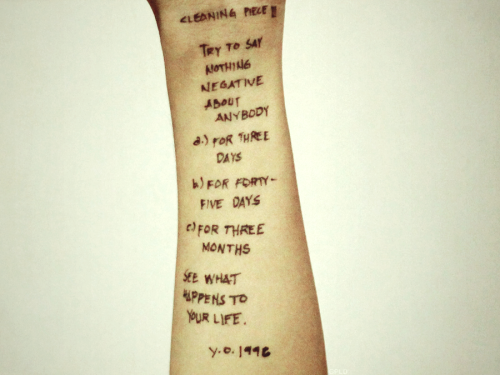 CLEANING PIECE II
TRY TO SAY
NOTHING
NEGATIVE
ABOUT
ANYBODY
a.) FOR THREE
DAYS
b) FOR FORTY-
FIVE DAYS
c) FOR THREE
MONTHS
SEE WHAT
HAPPENS TO
YOUR LIFE.
y.o. 1996